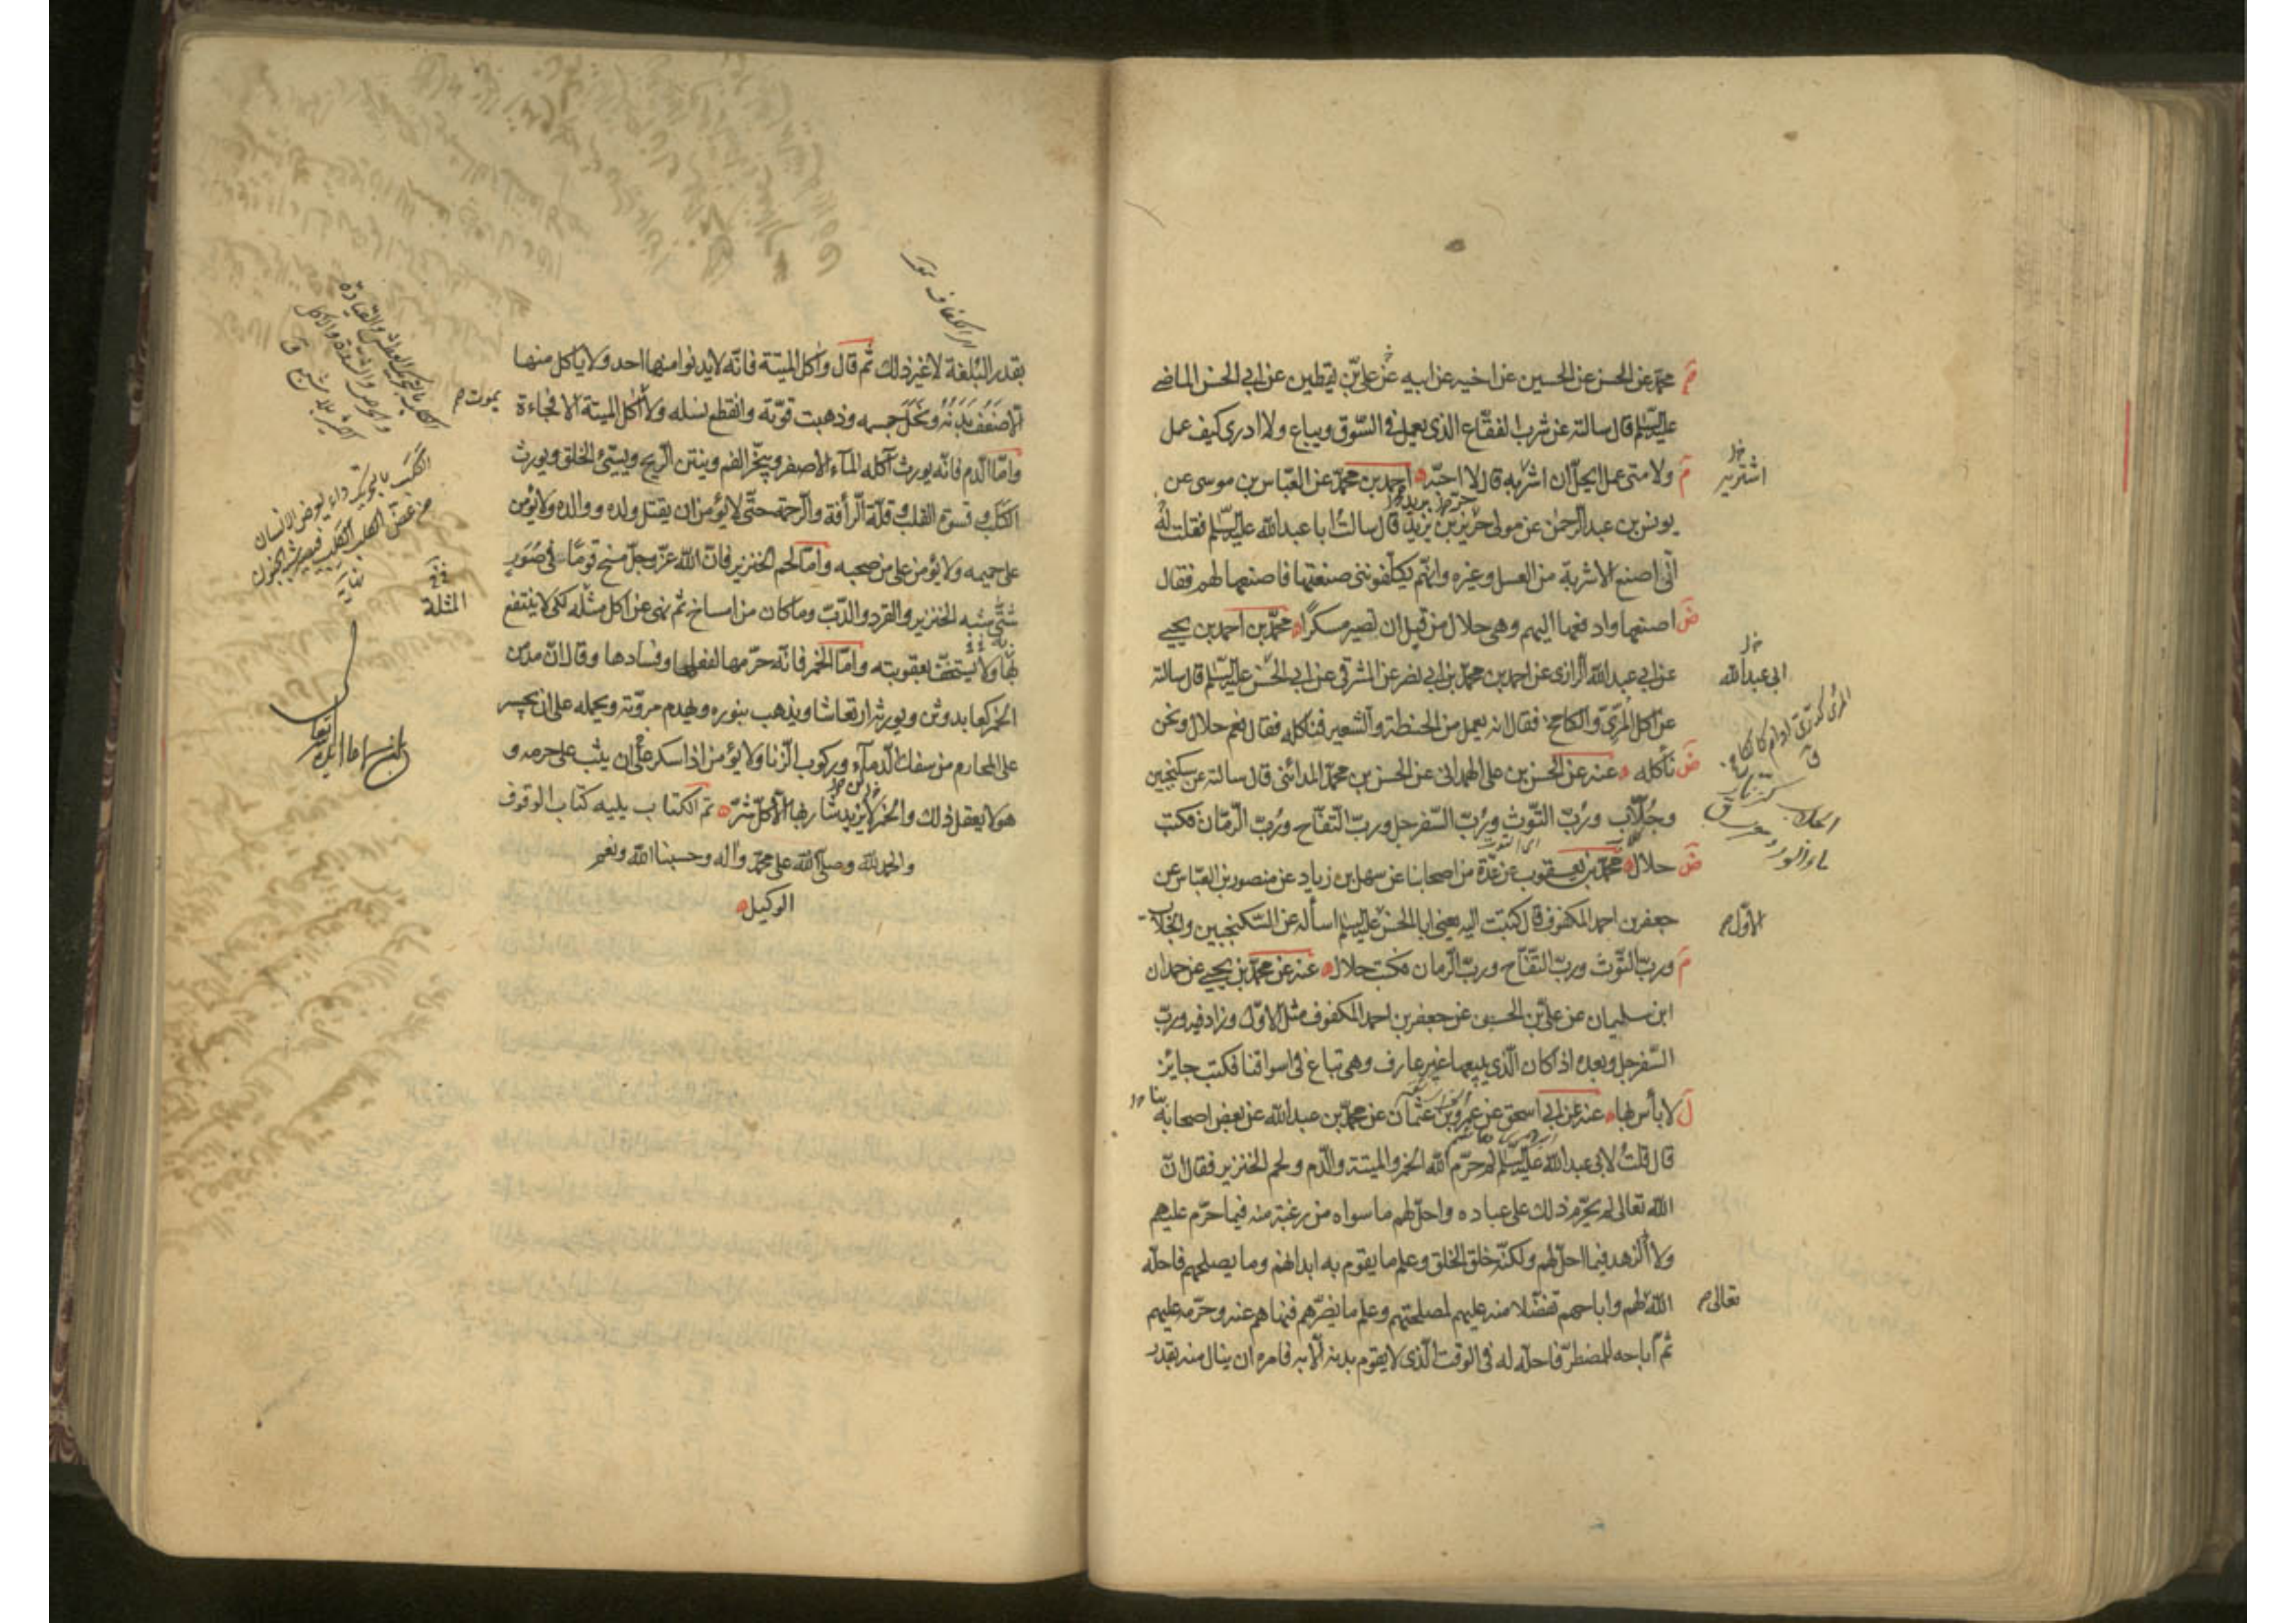 محمد عن الحسن عن الحسين عن اخيه عن ابيه عن علي بن يقطين عن ابي الحسن الماضي
عليه السلام قال سالته عن شرب الفقاع الذى يعمل في السوق ويباع ولا ادرى كيف عمل
ولا متى عمل ايحل ان اشربه قال لا احبه احمد بن محمد عن العباس بن موسى عن
يونس بن عبد الرحمن عن مولى حريز بن يزيد قال سالت ابا عبد الله عليه السلام فقلت له
انى اصنع الاشربة من العسل وغيره وانهم يكلفوننى صنعتها فاصنعها لهم فقال
اصنعها وادفعها اليهم وهى حلال من قبل ان تصير مسكرا محمد بن احمد بن يحيى
عن ابي عبد الله الرازى عن احمد بن محمد بن ابي نصر عن المشرقى عن ابي الحسن عليه السلام قال سالته
عن اكل المرّى والكامخ فقال انه يعمل من الحنطة والشعير فنأكله فقال نعم حلال ونحن
نأكله عنه عن الحسن بن على الهمدانى عن الحسن بن محمد المدائنى قال سالته عن سكنجبين
وجُلّاب ورُبّ التوث ورُبّ السفرجل وربّ التفاح وربّ الرمان فكتب
حلال محمد بن يعقوب عن عدة من اصحابنا عن سهل بن زياد عن منصور بن العباس عن
جعفر بن احمد المكفوف قال كتبت اليه يعنى ابا الحسن عليه السلام اسأله عن السكنجبين والجلاب
وربّ التوث وربّ التفاح وربّ الرمان فكتب حلال عنه عن محمد بن يحيى عن حمدان
ابن سليمان عن علي بن الحسن عن جعفر بن احمد المكفوف مثل الاول وزاد فيه وربّ
السفرجل وبعده اذا كان الذى يبيعها غير عارف وهى تباع فى اسواقنا فكتب جايز
لا بأس بها عنه عن ابي اسحق عن عمرو بن عثمان عن محمد بن عبد الله عن بعض اصحابه
قال قلت لابى عبد الله عليه السلام لم حرّم الله الخمر والميتة والدم ولحم الخنزير فقال ان
الله تعالى لم يحرّم ذلك على عباده واحل لهم ما سواه من رغبة منه فيما حرّم عليهم
ولا زهد فيما احل لهم ولكنه خلق الخلق وعلم ما يقوم به ابدانهم وما يصلحهم فاحله
الله لهم واباحهم تفضلا منه عليهم لمصلحتهم وعلم ما يضرهم فنهاهم عنه وحرّمه عليهم
ثم اباحه للمضطر فاحله له فى الوقت الذى لا يقوم بدنه الا به فامره ان ينال منه بقدر
اشتريه
ابى عبد الله
الاول
تعالى
بقدر البُلغة لا غير ذلك ثم قال واكل الميتة فانه لا يدنوا منها احد ولا ياكل منها
الا ضعف بدنه ونحل جسمه وذهبت قوّته وانقطع نسله ولا آكل الميتة الا فجاءة
وامّا الدم فانه يورث آكله الماء الاصفر ويبخّر الفم وينتن الريح ويسيئ الخلق ويورث
الكلَب وقسوة القلب وقلة الرأفة والرحمة حتى لا يؤمن ان يقتل ولده ووالده ولا يؤمن
على حميمه ولا يؤمن على من صحبه وامّا لحم الخنزير فان الله عز وجل مسخ قوما فى صُوَر
شتّى شبه الخنزير والقرد والدّبّ وما كان من امساخ ثم نهى عن اكل مثله لكى لا ينتفع
بها ولا يستخفّ بعقوبته وامّا الخمر فانه حرّمها لفعلها وفسادها وقال ان مدمن
الخمر كعابد وثن ويورثه ارتعاشا ويذهب بنوره ويهدم مروّته ويحمله على ان يجسر
على المحارم من سفك الدماء وركوب الزنا ولا يؤمن اذا سكر على ان يثب على حرمه و
هو لا يعقل ذلك والخمر لا يزيد شاربها الا كل شرّ تم الكتاب يليه كتاب الوقوف
والحمد لله وصلى الله على محمد وآله وحسبنا الله ونعم
الوكيل
يموت
الكلَب بالتحريك داء يعرض الانسان
من عضّ الكلب الكلِب فيصير شبه الجنون
المثلة